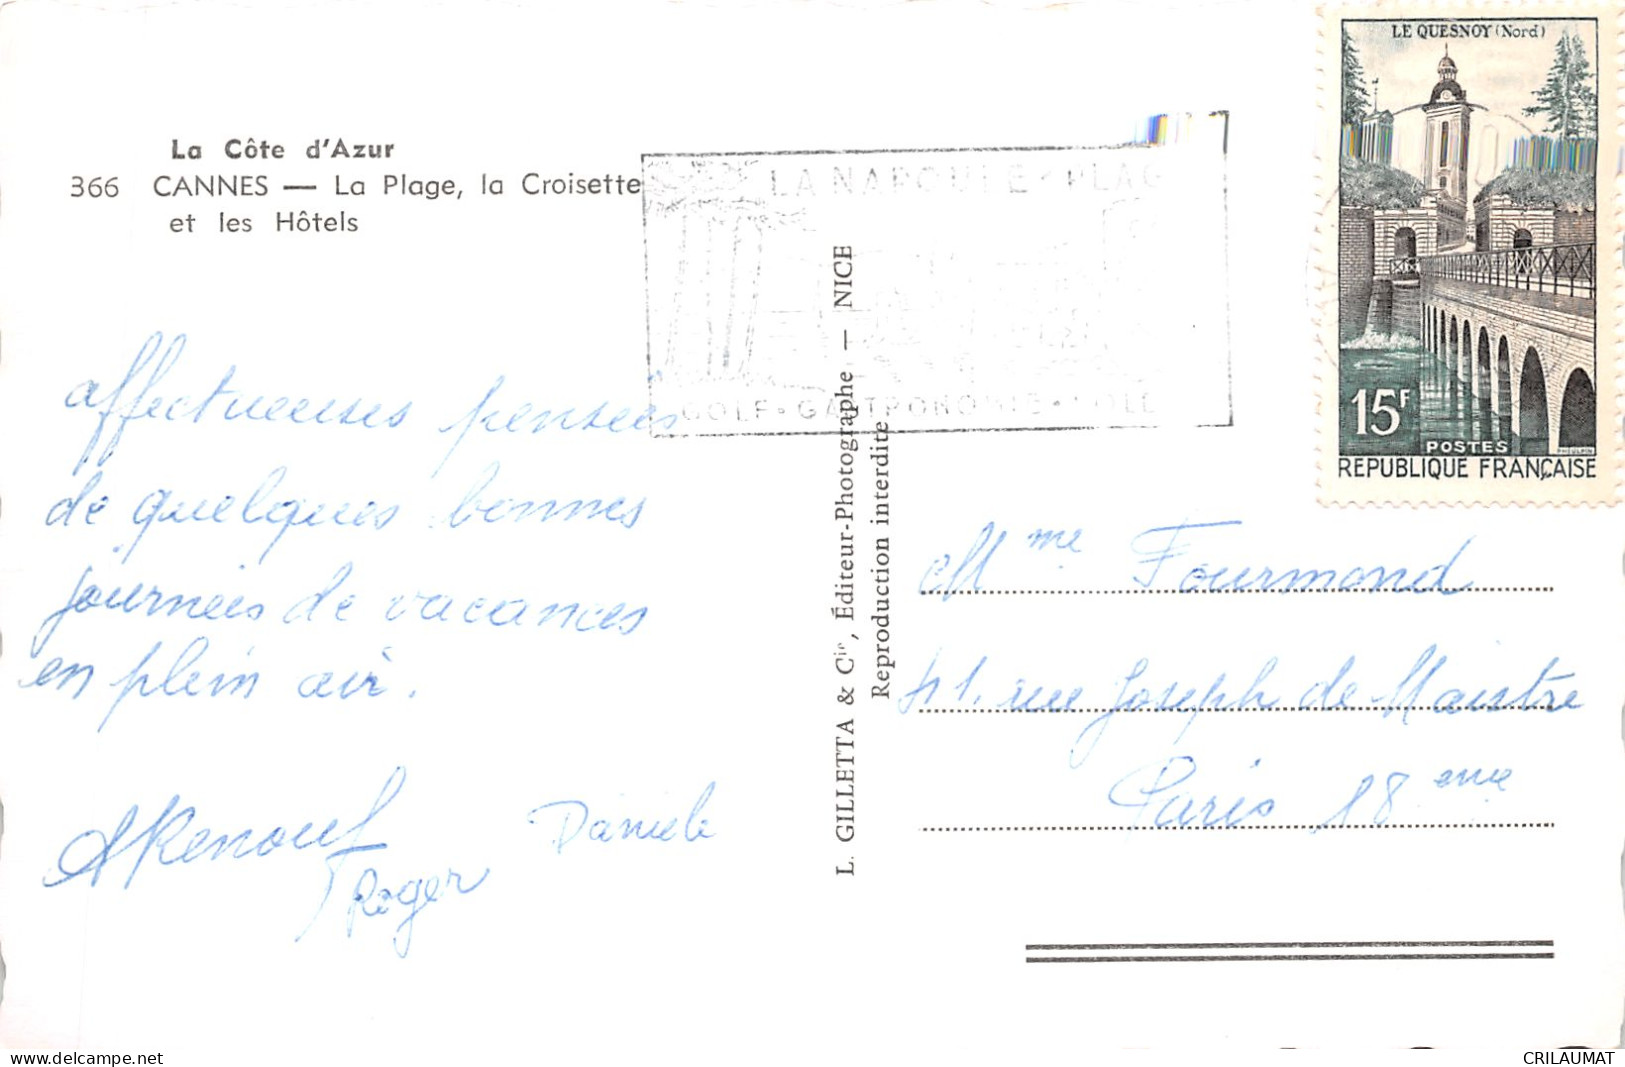 La Côte d'Azur
366 CANNES — La Plage, la Croisette
et les Hôtels
LA NAPOULE - PLAG
GOLF - GASTRONOMIE -
affectueuses pensées
de quelques bonnes
journées de vacances
en plein air.
ARenouf
Roger
Danièle
L. GILLETTA & Cie, Éditeur-Photographe — NICE
Reproduction interdite
LE QUESNOY (Nord)
15F
POSTES
REPUBLIQUE FRANÇAISE
Mme Fourmond
41. rue Joseph de Maistre
Paris 18eme
delcampe.net
CRILAUMAT